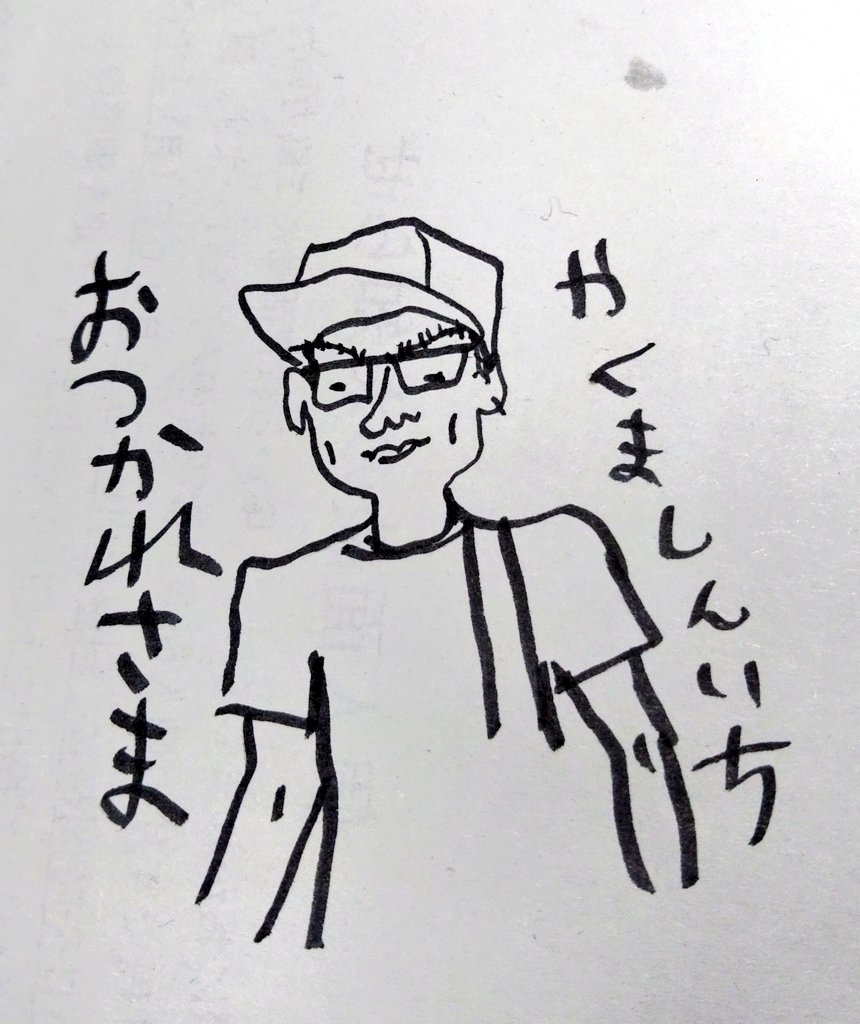 やくましんいち
おつかれさま